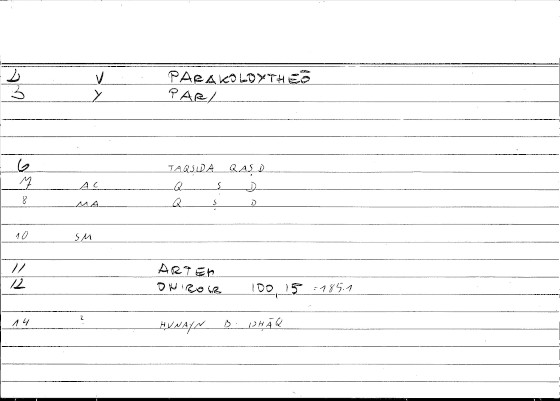 V PARAKOLOYTHEŌ
Y PAR/
6 TAQSIDA QAṢD
7 AC Q Ṣ D
8 MA Q Ṣ D
10 SM
11 ARTEM
12 ONIROCR 100,15 =185.1
14 ḤUNAYN B. ISḤĀQ